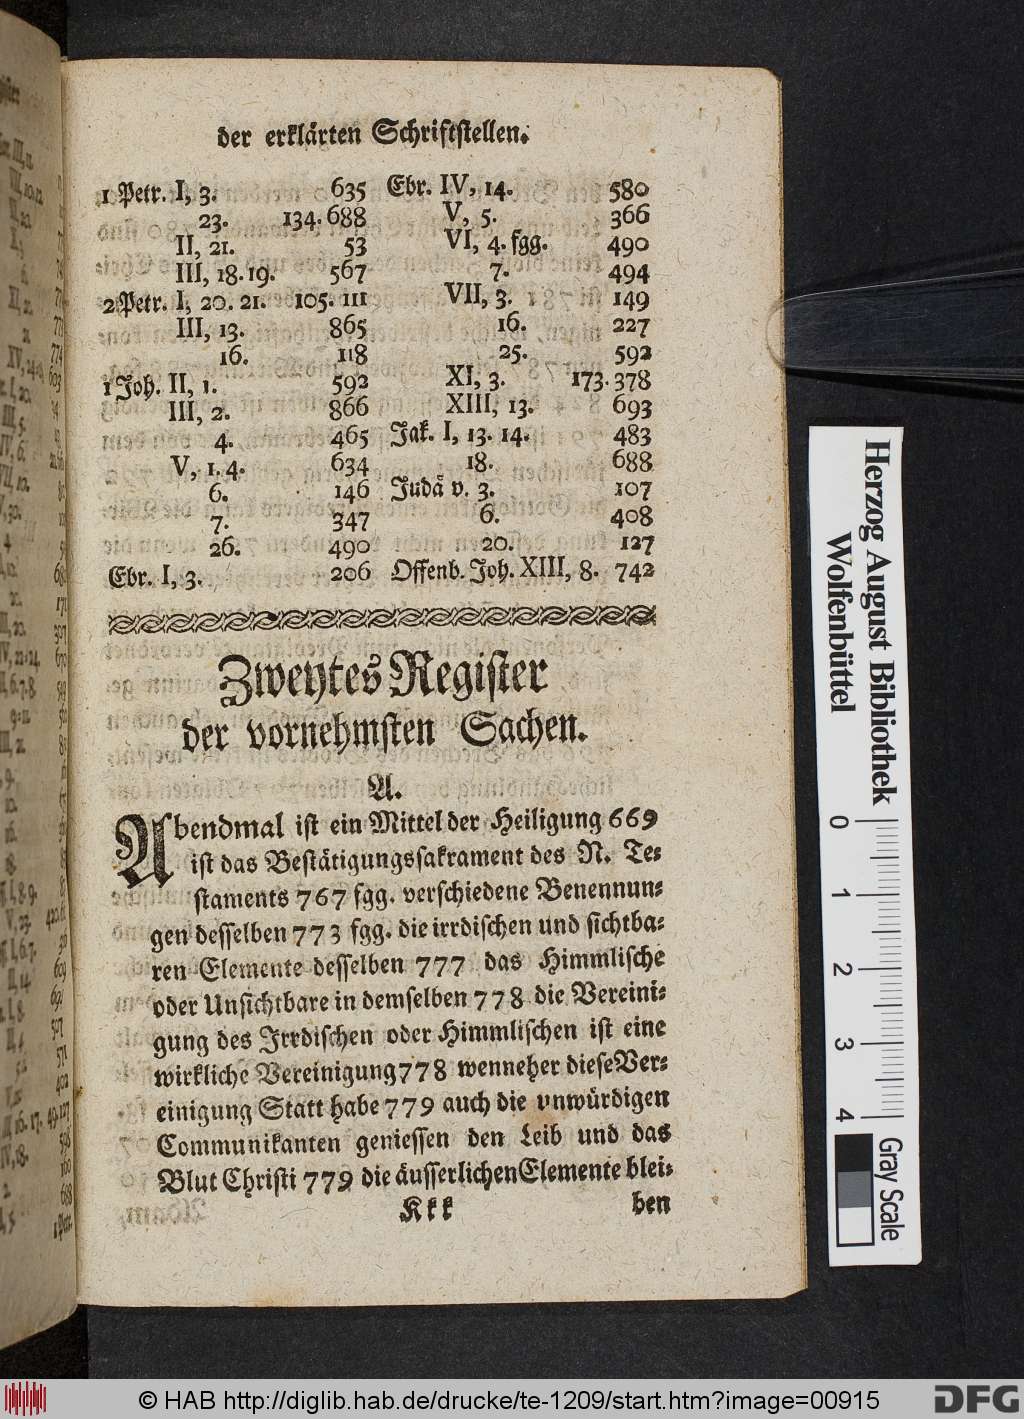 der erklärten Schriftstellen.
1 Petr. I, 3. 635
23. 134. 688
II, 21. 53
III, 18. 19. 567
2 Petr. I, 20. 21. 105. 111
III, 13. 865
16. 118
1 Joh. II, 1. 592
III, 2. 866
4. 465
V, 1. 4. 634
6. 146
7. 347
26. 490
Ebr. I, 3. 206
Ebr. IV, 14. 580
V, 5. 366
VI, 4. fgg. 490
7. 494
VII, 3. 149
16. 227
25. 592
XI, 3. 173. 378
XIII, 13. 693
Jak. I, 13. 14. 483
18. 688
Judä v. 3. 107
6. 408
20. 127
Offenb. Joh. XIII, 8. 742
Zweytes Register
der vornehmsten Sachen.
A.
Abendmal ist ein Mittel der Heiligung 669
ist das Bestätigungssakrament des N. Te-
staments 767 fgg. verschiedene Benennun-
gen desselben 773 fgg. die irrdischen und sichtba-
ren Elemente desselben 777 das Himmlische
oder Unsichtbare in demselben 778 die Vereini-
gung des Irrdischen oder Himmlischen ist eine
wirkliche Vereinigung 778 wenneher diese Ver-
einigung Statt habe 779 auch die unwürdigen
Communikanten geniessen den Leib und das
Blut Christi 779 die äusserlichen Elemente blei-
Kkk
ben
Herzog August Bibliothek
Wolfenbüttel
0 1 2 3 4
Gray Scale
© HAB http://diglib.hab.de/drucke/te-1209/start.htm?image=00915
DFG